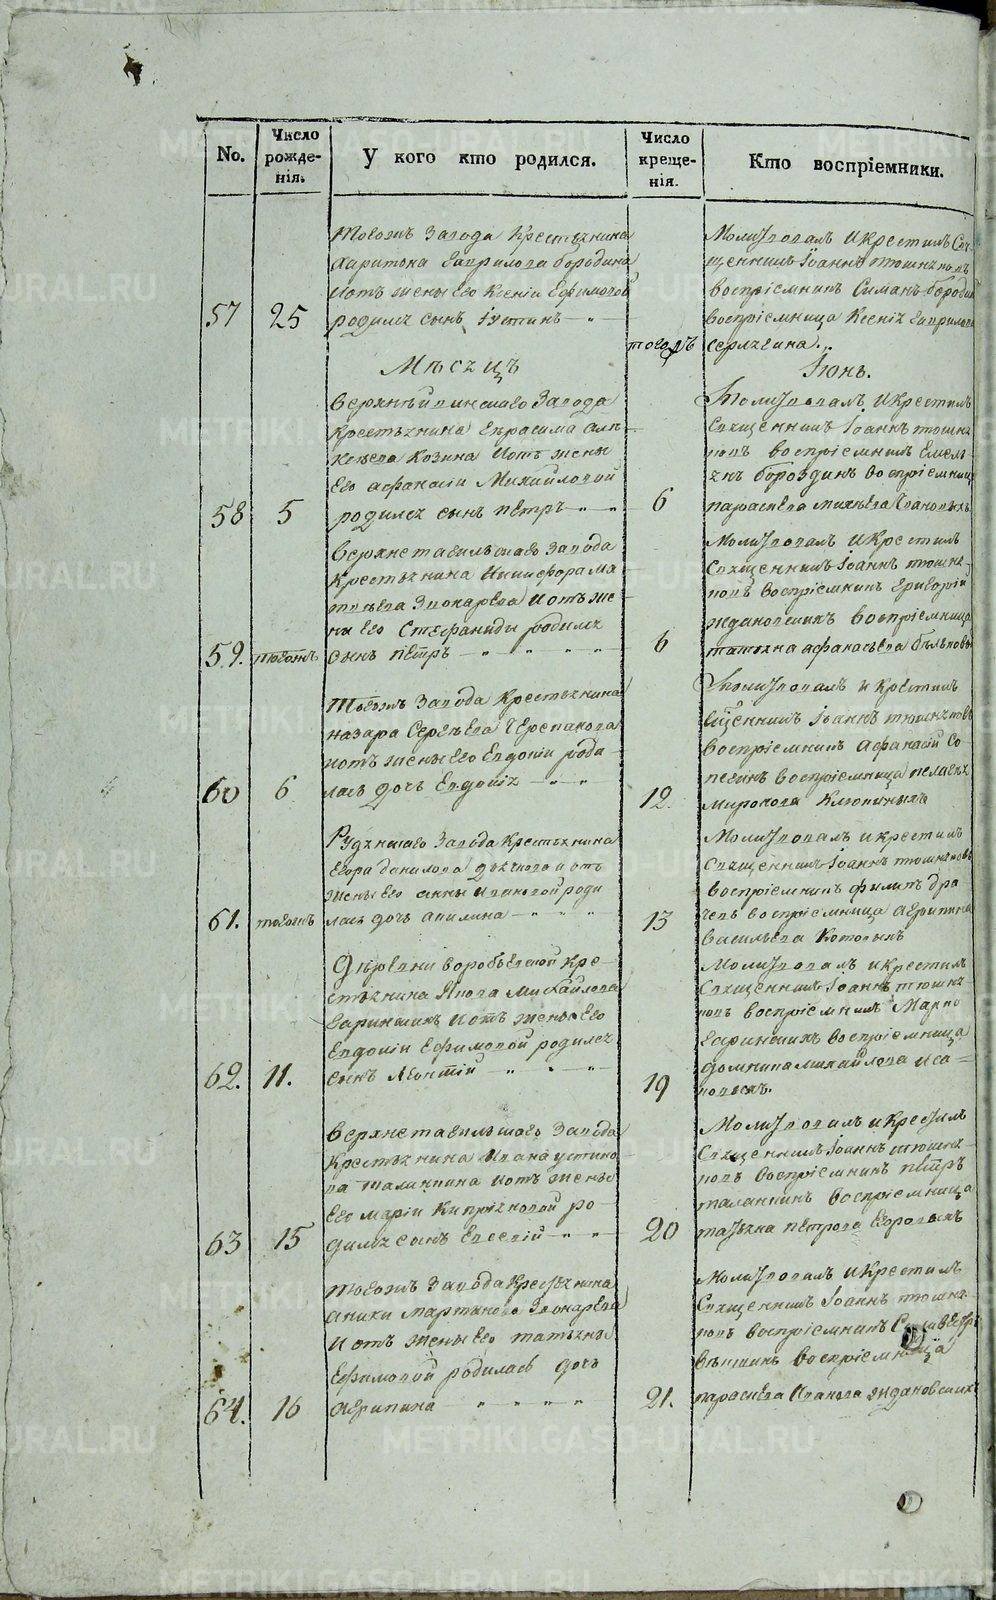 No.
Число рожде-нія.
У кого кто родился.
Число креще-нія.
Кто воспріемники.
Тогожъ Завода Крестьянина
Харитона Гаврилова Бородина
и отъ жены его Ксеніи Ефимовой
57 25 родился сынъ Іустинъ
тогожъ
Молитвовалъ и крестилъ Свя-
щенникъ Іоаннъ Тюшняковъ
воспріемникъ Симанъ Бородин
воспріемница Ксенія Гаврилова
Серлгвина
Мѣсяцъ Іюнь.
Верхнейвинскаго Завода
Крестьянина Герасима Але-
ксѣева Козина и отъ жены
его Афанасіи Михайловой
58 5 родился сынъ Петръ
6
Молитвовалъ и крестилъ
Священникъ Іоаннъ Тюшня-
ковъ воспріемникъ Емель-
янъ Бороздинъ воспріемница
Параскева
Верхнетагильскаго Завода
Крестьянина Никифора Ма-
твѣева Знокарева и отъ же-
ны его Стефаниды родился
59. тогожъ сынъ Петръ
6
Молитвовалъ и крестилъ
Священникъ Іоаннъ Тюшня-
ковъ воспріемникъ Григорій
Ждановскихъ воспріемница
Татьяна Афанасьева Бѣлькова
Тогожъ Завода Крестьянина
Назара Сергѣева Черепанова
и отъ жены его Евдокіи роди-
60 6 лась дочь Евдокія
12.
Молитвовалъ и крестилъ
Священникъ Іоаннъ Тюшняковъ
воспріемникъ Афанасій Со-
пегинъ воспріемница Пелагея
Миронова Клюпиныхъ
Рудянскаго Завода Крестьянина
Егора Данилова Дьячкова и отъ
жены его Анны Ивановой роди-
61. тогожъ лась дочь Акилина
13
Молитвовалъ и крестилъ
Священникъ Іоаннъ Тюшняковъ
воспріемникъ Филипъ Дра-
чевъ воспріемница Агрипина
Васильева
Деревни Воробьевской кре-
стьянина Якова Михайлова
Гаринскихъ и отъ жены его
Евдокіи Ефимовой родился
62. 11. сынъ Леонтій
19
Молитвовалъ и крестилъ
Священникъ Іоаннъ Тюшня-
ковъ воспріемникъ Марко
Гаринскихъ воспріемница
Домника Михайлова Иса-
ковыхъ.
Верхнетагильскаго Завода
Крестьянина Ивана Устино-
ва Таланкина и отъ жены
его Маріи Кипріяновой ро-
63 15 дился сынъ Елесей
20
Молитвовалъ и крестилъ
Священникъ Іоаннъ Тюшня-
ковъ воспріемникъ Петръ
Таланкинъ воспріемница
Татьяна Петрова Егоровыхъ
Тогожъ Завода Крестьянина
Аники Мартынова Знокарева
и отъ жены его Татьяны
Ефимовой родилась дочь
64. 16 Агрипина
21.
Молитвовалъ и крестилъ
Священникъ Іоаннъ Тюшня-
ковъ воспріемникъ
воспріемница
Параскева Иванова Ждановскихъ
METRIKI.GASO-URAL.RU